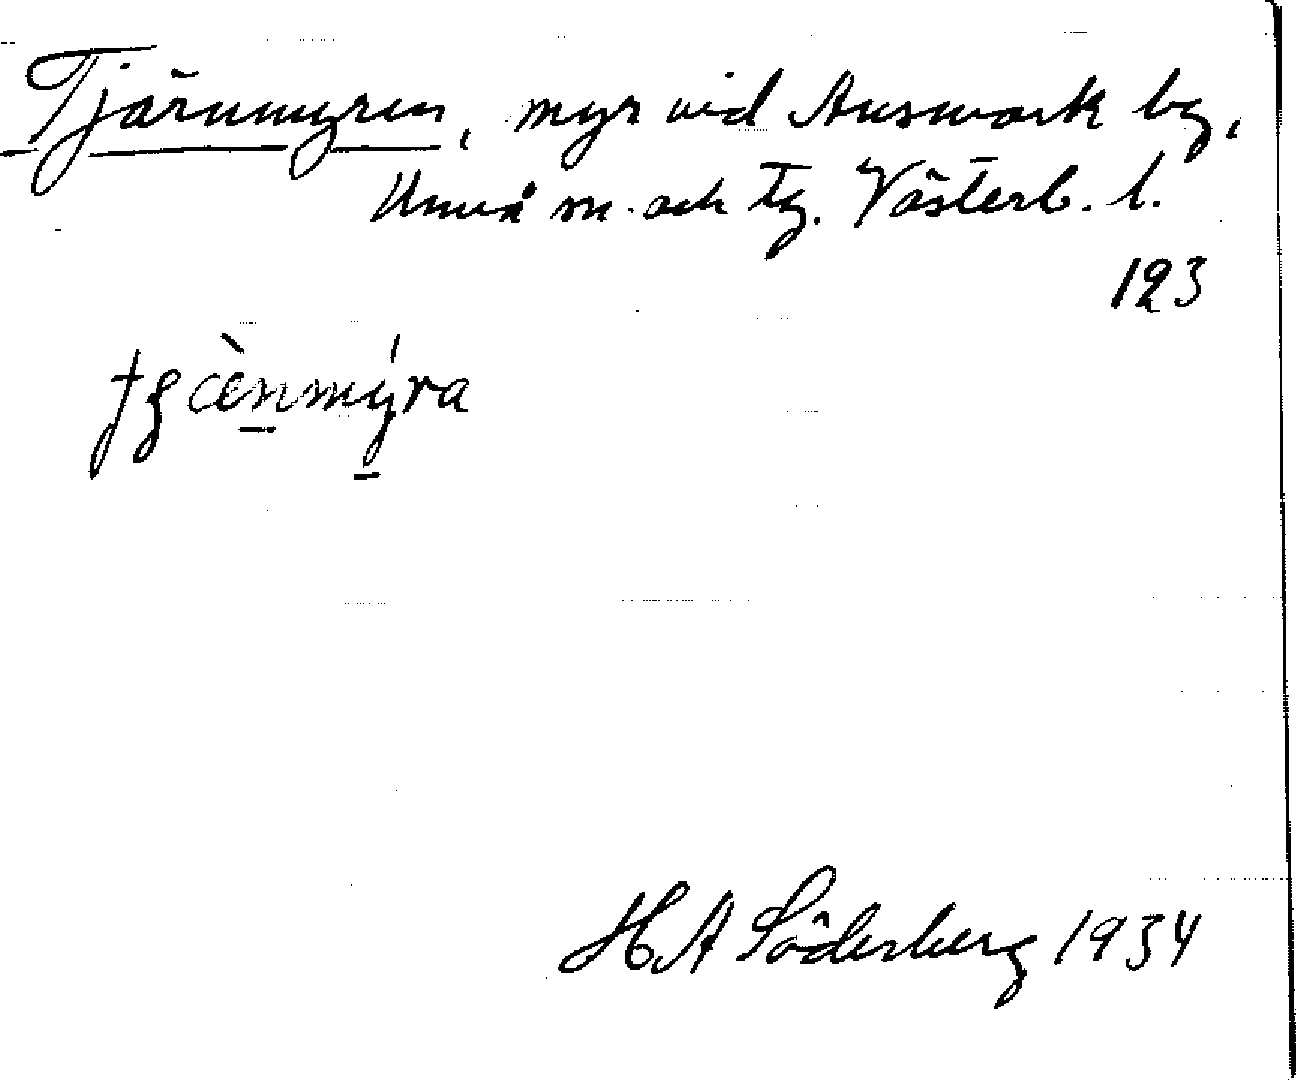 Tjärnmyren, myr vid Ansmark by,
Umeå sn. och tg. Västerb. l.
123
H A Söderberg 1934